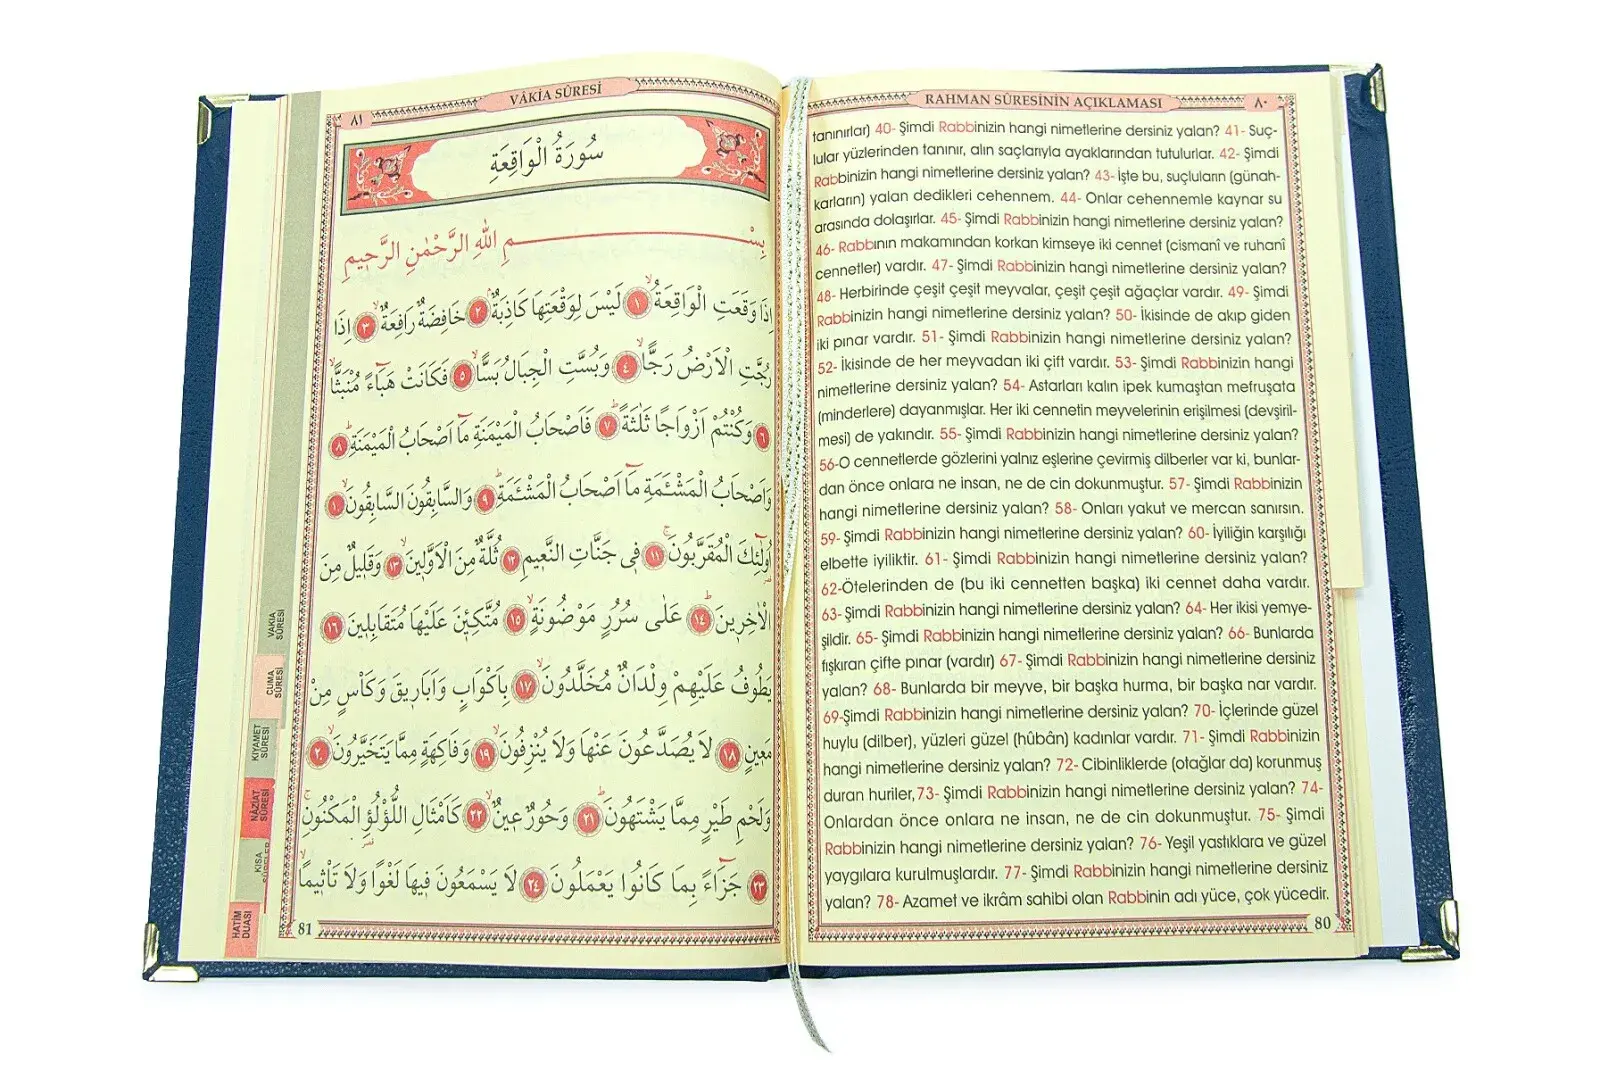 VÂKİA SÛRESİ
٨١
سُورَةُ الْوَاقِعَةِ
بِسْمِ اللهِ الرَّحْمٰنِ الرَّحٖيمِ
اِذَا وَقَعَتِ الْوَاقِعَةُۙ ١ لَيْسَ لِوَقْعَتِهَا كَاذِبَةٌۘ ٢ خَافِضَةٌ رَافِعَةٌۙ ٣ اِذَا
رُجَّتِ الْاَرْضُ رَجًّاۙ ٤ وَبُسَّتِ الْجِبَالُ بَسًّاۙ ٥ فَكَانَتْ هَبَٓاءً مُنْبَثًّاۙ
٦ وَكُنْتُمْ اَزْوَاجًا ثَلٰثَةًؕ ٧ فَاَصْحَابُ الْمَيْمَنَةِ مَٓا اَصْحَابُ الْمَيْمَنَةِؕ ٨
وَاَصْحَابُ الْمَشْـَٔمَةِ مَٓا اَصْحَابُ الْمَشْـَٔمَةِؕ ٩ وَالسَّابِقُونَ السَّابِقُونَۙ ١٠
اُولٰٓئِكَ الْمُقَرَّبُونَۚ ١١ فٖى جَنَّاتِ النَّعٖيمِ ١٢ ثُلَّةٌ مِنَ الْاَوَّلٖينَۙ ١٣ وَقَلٖيلٌ مِنَ
الْاٰخِرٖينَؕ ١٤ عَلٰى سُرُرٍ مَوْضُونَةٍۙ ١٥ مُتَّكِـٖٔينَ عَلَيْهَا مُتَقَابِلٖينَ ١٦
يَطُوفُ عَلَيْهِمْ وِلْدَانٌ مُخَلَّدُونَۙ ١٧ بِاَكْوَابٍ وَاَبَارٖيقَ وَكَاْسٍ مِنْ
مَعٖينٍۙ ١٨ لَا يُصَدَّعُونَ عَنْهَا وَلَا يُنْزِفُونَۙ ١٩ وَفَاكِهَةٍ مِمَّا يَتَخَيَّرُونَۙ ٢٠
وَلَحْمِ طَيْرٍ مِمَّا يَشْتَهُونَؕ ٢١ وَحُورٌ عٖينٌۙ ٢٢ كَاَمْثَالِ اللُّؤْلُؤِ الْمَكْنُونِۚ
٢٣ جَزَٓاءً بِمَا كَانُوا يَعْمَلُونَ ٢٤ لَا يَسْمَعُونَ فٖيهَا لَغْوًا وَلَا تَاْثٖيمًاۙ
81
VAKIA
SÛRESİ
CUMA
SÛRESİ
KIYAMET
SÛRESİ
NÂZİAT
SÛRESİ
KISA
SÛRELER
HATİM
DUASI
RAHMAN SÛRESİNİN AÇIKLAMASI
٨٠
tanınırlar) 40- Şimdi Rabbinizin hangi nimetlerine dersiniz yalan? 41- Suç-
lular yüzlerinden tanınır, alın saçlarıyla ayaklarından tutulurlar. 42- Şimdi
Rabbinizin hangi nimetlerine dersiniz yalan? 43- işte bu, suçluların (günah-
karların) yalan dedikleri cehennem. 44- Onlar cehennemle kaynar su
arasında dolaşırlar. 45- Şimdi Rabbinizin hangi nimetlerine dersiniz yalan?
46- Rabbının makamından korkan kimseye iki cennet (cismanî ve ruhanî
cennetler) vardır. 47- Şimdi Rabbinizin hangi nimetlerine dersiniz yalan?
48- Herbirinde çeşit çeşit meyvalar, çeşit çeşit ağaçlar vardır. 49- Şimdi
Rabbinizin hangi nimetlerine dersiniz yalan? 50- İkisinde de akıp giden
iki pınar vardır. 51- Şimdi Rabbinizin hangi nimetlerine dersiniz yalan?
52- İkisinde de her meyvadan iki çift vardır. 53- Şimdi Rabbinizin hangi
nimetlerine dersiniz yalan? 54- Astarları kalın ipek kumaştan mefruşata
(minderlere) dayanmışlar. Her iki cennetin meyvelerinin erişilmesi (devşiril-
mesi) de yakındır. 55- Şimdi Rabbinizin hangi nimetlerine dersiniz yalan?
56-O cennetlerde gözlerini yalnız eşlerine çevirmiş dilberler var ki, bunlar-
dan önce onlara ne insan, ne de cin dokunmuştur. 57- Şimdi Rabbinizin
hangi nimetlerine dersiniz yalan? 58- Onları yakut ve mercan sanırsın.
59- Şimdi Rabbinizin hangi nimetlerine dersiniz yalan? 60- İyiliğin karşılığı
elbette iyiliktir. 61- Şimdi Rabbinizin hangi nimetlerine dersiniz yalan?
62-Ötelerinden de (bu iki cennetten başka) iki cennet daha vardır.
63- Şimdi Rabbinizin hangi nimetlerine dersiniz yalan? 64- Her ikisi yemye-
şildir. 65- Şimdi Rabbinizin hangi nimetlerine dersiniz yalan? 66- Bunlarda
fışkıran çifte pınar (vardır) 67- Şimdi Rabbinizin hangi nimetlerine dersiniz
yalan? 68- Bunlarda bir meyve, bir başka hurma, bir başka nar vardır.
69-Şimdi Rabbinizin hangi nimetlerine dersiniz yalan? 70- İçlerinde güzel
huylu (dilber), yüzleri güzel (hûbân) kadınlar vardır. 71- Şimdi Rabbinizin
hangi nimetlerine dersiniz yalan? 72- Cibinliklerde (otağlar da) korunmuş
duran huriler,73- Şimdi Rabbinizin hangi nimetlerine dersiniz yalan? 74-
Onlardan önce onlara ne insan, ne de cin dokunmuştur. 75- Şimdi
Rabbinizin hangi nimetlerine dersiniz yalan? 76- Yeşil yastıklara ve güzel
yaygılara kurulmuşlardır. 77- Şimdi Rabbinizin hangi nimetlerine dersiniz
yalan? 78- Azamet ve ikrâm sahibi olan Rabbinin adı yüce, çok yücedir.
80